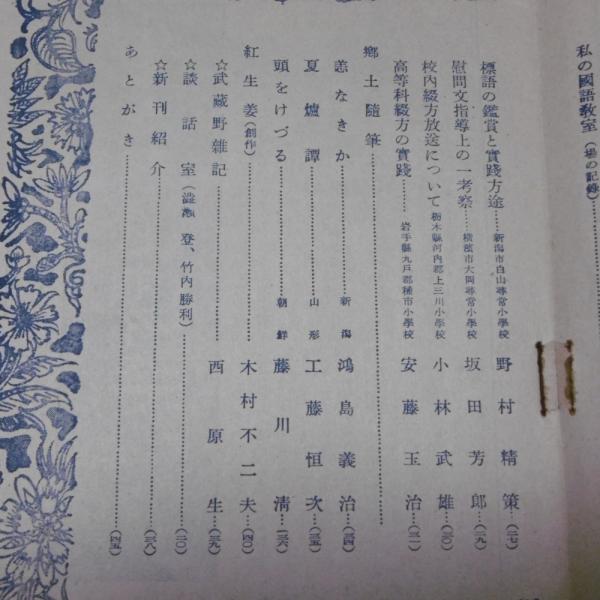 私の國語教室（場の記錄）
標語の鑑賞と實踐方途……新潟市白山尋常小學校 野村精策…（二七）
慰問文指導上の一考察……橫濱市大岡尋常小學校 坂田芳郎…（二九）
校內綴方放送について 栃木縣河內郡上三川小學校 小林武雄…（三〇）
高等科綴方の實踐……岩手縣九戶郡種市小學校 安藤玉治…（三一）
鄉土隨筆
恙なきか……新潟 鴻島義治…（三四）
夏爐譚……山形 工藤恒次…（三五）
頭をけづる……朝鮮 藤川淸…（三六）
紅生姜（創作）……木村不二夫…（四〇）
☆武藏野雜記……西原生…（三九）
☆談話室（澁瀨登、竹內勝利）……（二〇）
☆新刊紹介……（三八）
あとがき……（四五）